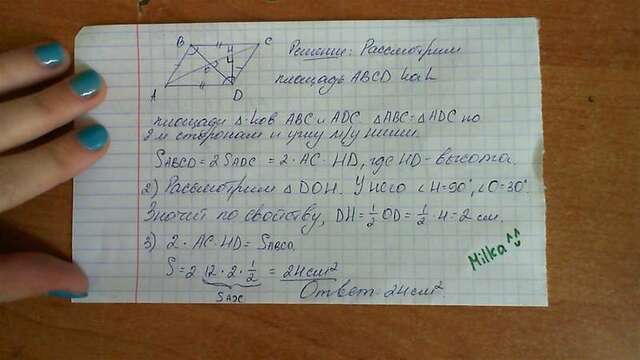 B C
Решение: Рассмотрим
A D
площадь ABCD как
площади Δ-ков ABC и ADC. ΔABC=ΔADC по
2м сторонам и углу м/у ними.
SABCD=2SADC=2·AC·HD, где HD-высота.
2) Рассмотрим ΔDOH. У него ∠H=90°, ∠O=30°.
Значит по свойству, DH=½OD=½·4=2см.
3) 2·AC·HD=SABCD.
S=2·12·2·½=24см²
SADC
Ответ 24см².
Milka^^